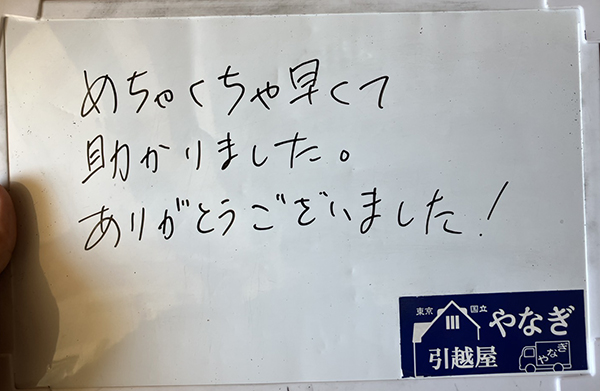 めちゃくちゃ早くて
助かりました。
ありがとうございました!
東京 国立 やなぎ
引越屋 やなぎ